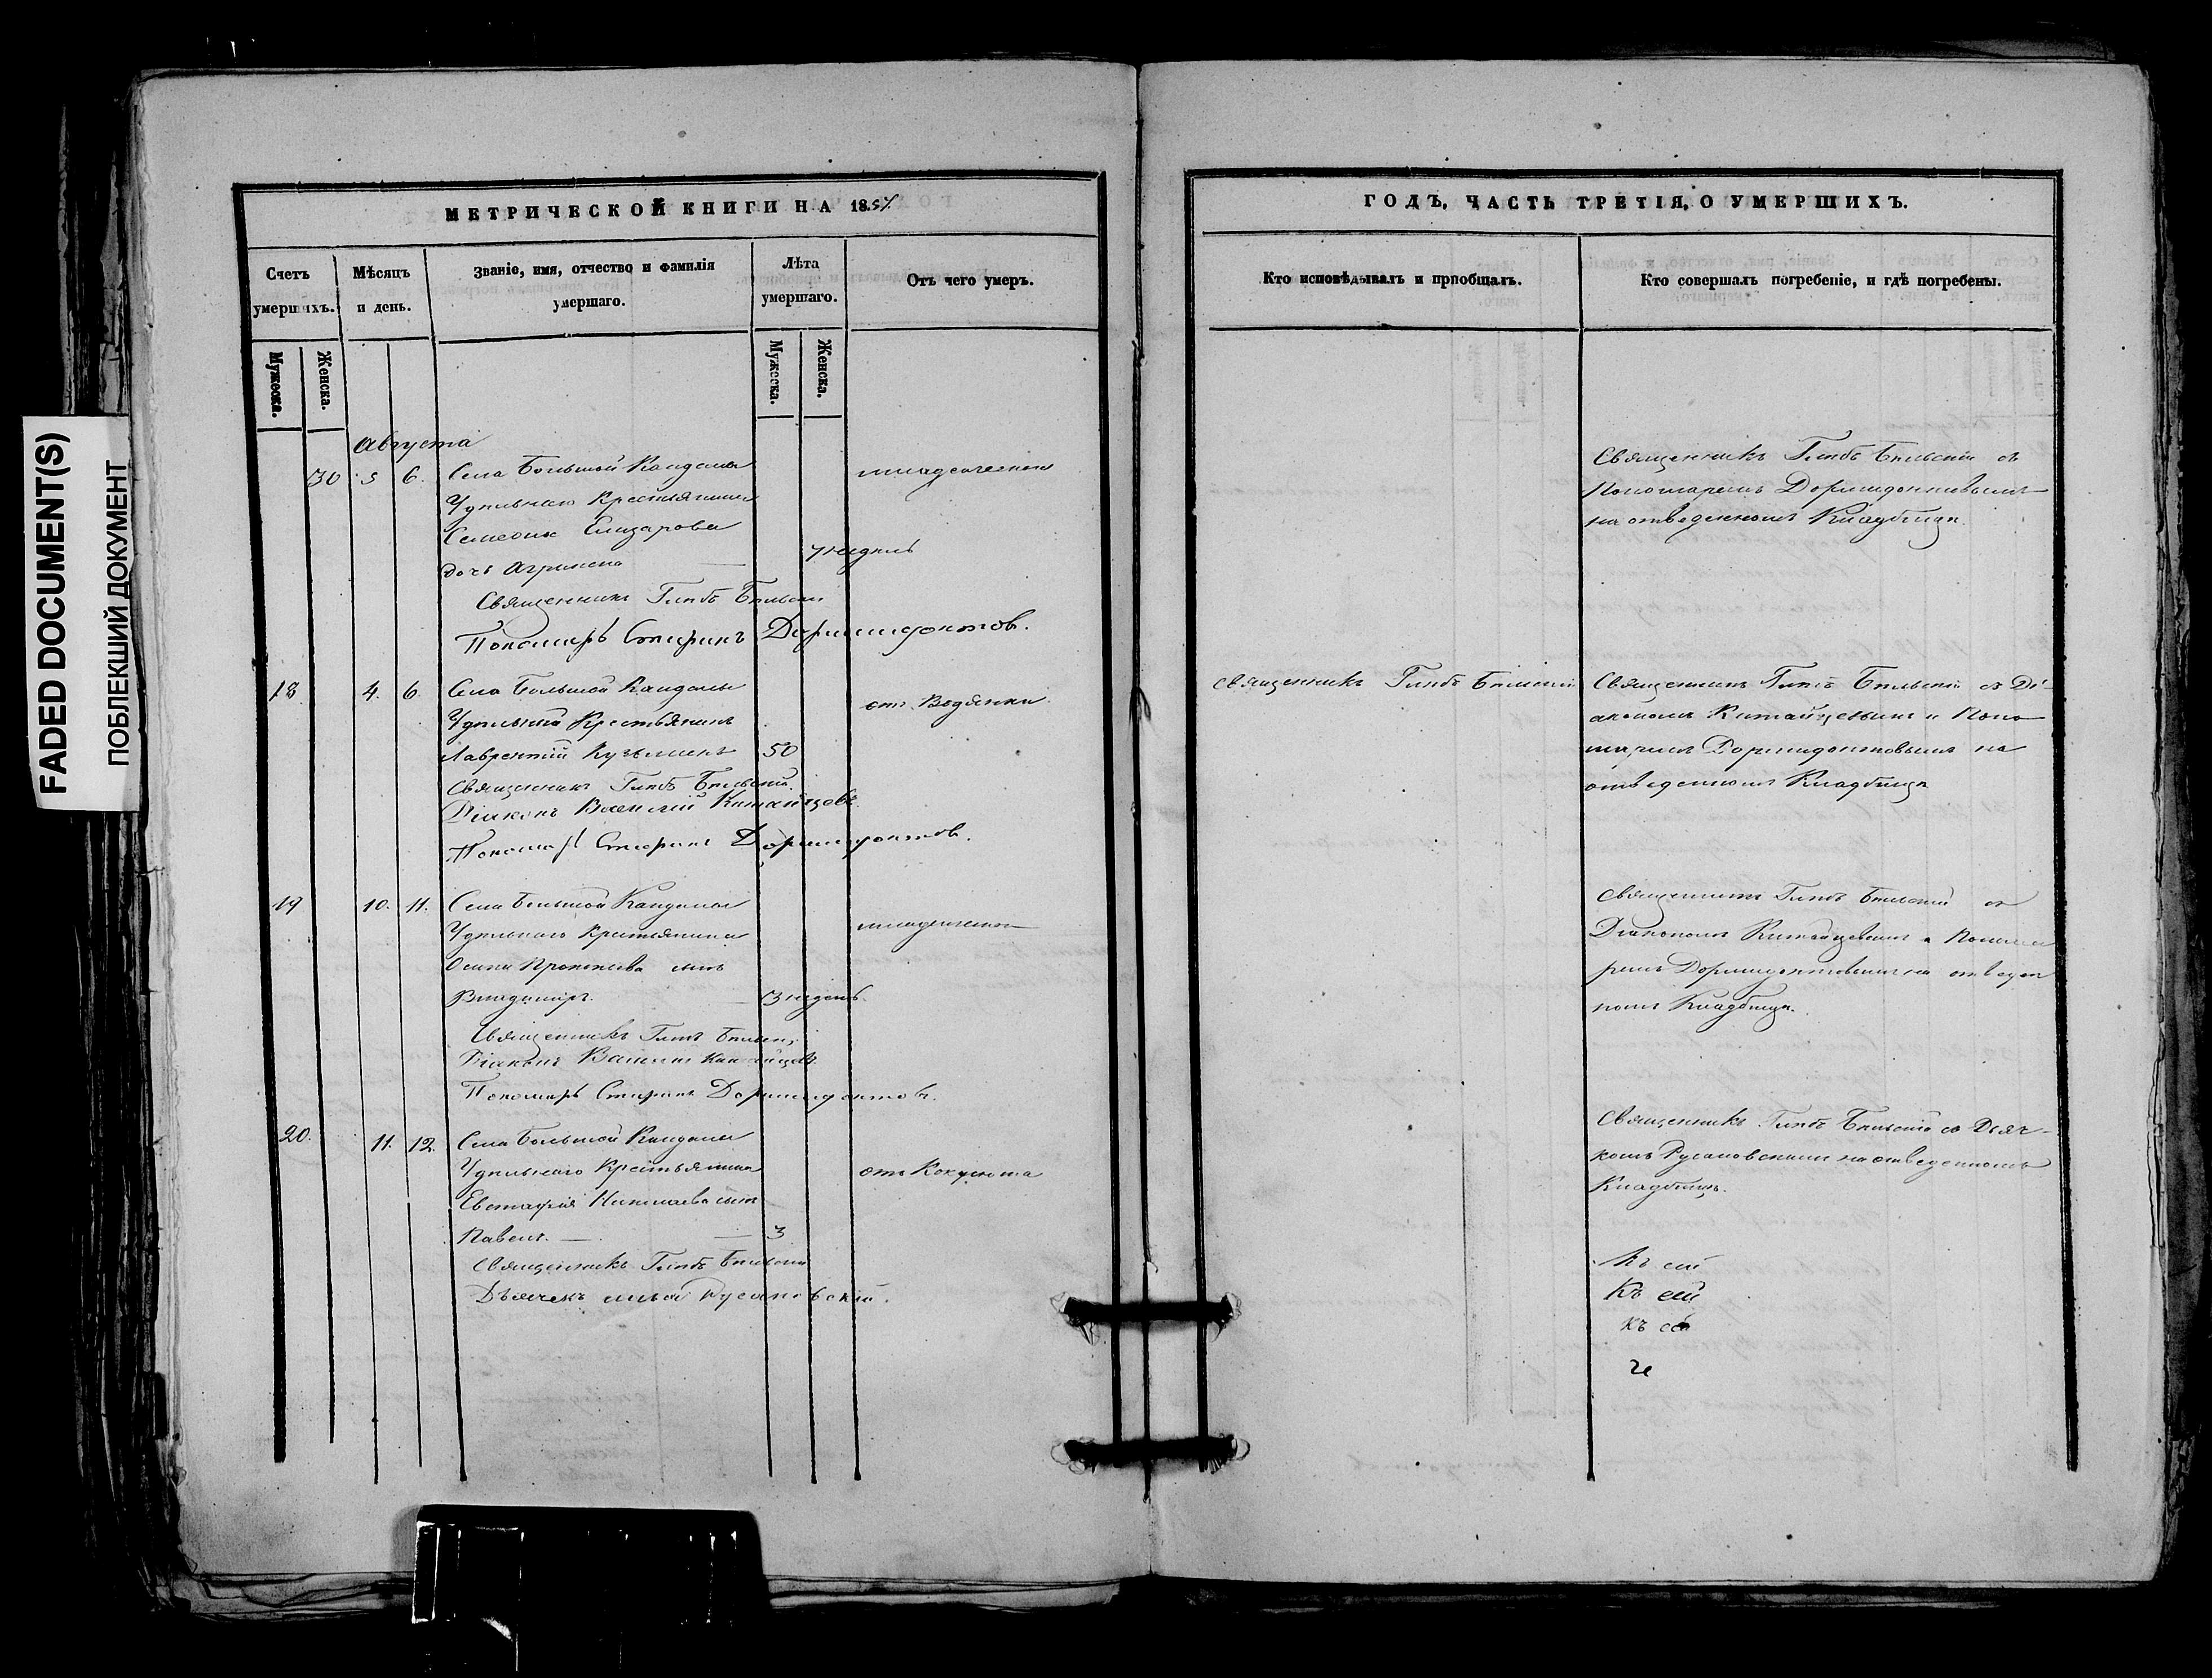 FADED DOCUMENT(S)
ПОБЛЕКШИЙ ДОКУМЕНТ
МЕТРИЧЕСКОЙ КНИГИ НА 18
Счетъ умершихъ.
Мѣсяцъ и день.
Званіе, имя, отчество и фамилія умершаго.
Лѣта умершаго.
Отъ чего умеръ.
Мужеска.
Женска.
Мужеска.
Женска.
Августа
30 5 6. Села Большой Кандалы
Удѣльнаго Крестьянина
Семена Елизарова
дочь Агрипена 7 недѣль
Священникъ Глѣбъ Бѣльскій
Пономарь Доримидонтов.
18 4. 6. Села Большой Кандалы отъ Водянки
Удѣльный Крестьянинъ
Лаврентій Кузьминъ 50
Священникъ Глѣбъ Бѣльскій.
Діаконъ Василій Китайцовъ.
Пономарь Доримидонтов.
19 10. 11. Села Большой Кандалы
Удѣльнаго Крестьянина
Осипа Прокопьева сынъ
Владимiръ. 3 недѣль.
Священникъ Глѣбъ Бѣльскій
Діаконъ Василій Китайцовъ
Пономарь Доримидонтовъ.
20. 11. 12. Села Большой Кандалы
Удѣльнаго Крестьянина отъ Коклюша
Евстафія Николаева сынъ
Павелъ. — 3
Священникъ Глѣбъ Бѣльскій
Дьячекъ Русановскій.
ГОДЪ, ЧАСТЬ ТРЕТІЯ, О УМЕРШИХЪ.
Кто исповѣдывалъ и пріобщалъ.
Кто совершалъ погребеніе, и гдѣ погребены.
Священникъ Глѣбъ Бѣльскій съ
Пономаремъ Доримидонтовымъ
на отведенномъ Кладбищѣ.
Священникъ Глѣбъ Бѣльскій
Священникъ Глѣбъ Бѣльскій съ Ді-
акономъ Китайцевымъ и Поно
маремъ Доримидонтовымъ на
отведенномъ Кладбищѣ
Священникъ Глѣбъ Бѣльскій съ
Діакономъ Китайцевымъ и Понома
ремъ Доримидонтовымъ на отведен
номъ Кладбищѣ.
Священникъ Глѣбъ Бѣльскій со Дьяч-
комъ Русановскимъ на отведенномъ
Кладбищѣ.
Къ сей
Къ сей
Къ сей